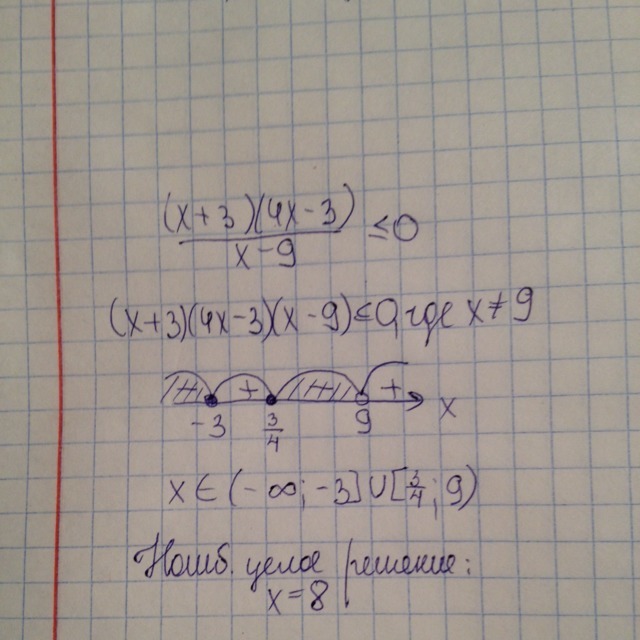 (x+3)(4x-3)
x-9
≤0
(x+3)(4x-3)(x-9)≤0, где x≠9
- + - +
-3 3/4 9 x
x∈(-∞;-3]∪[3/4;9)
Наиб. целое решение:
x=8